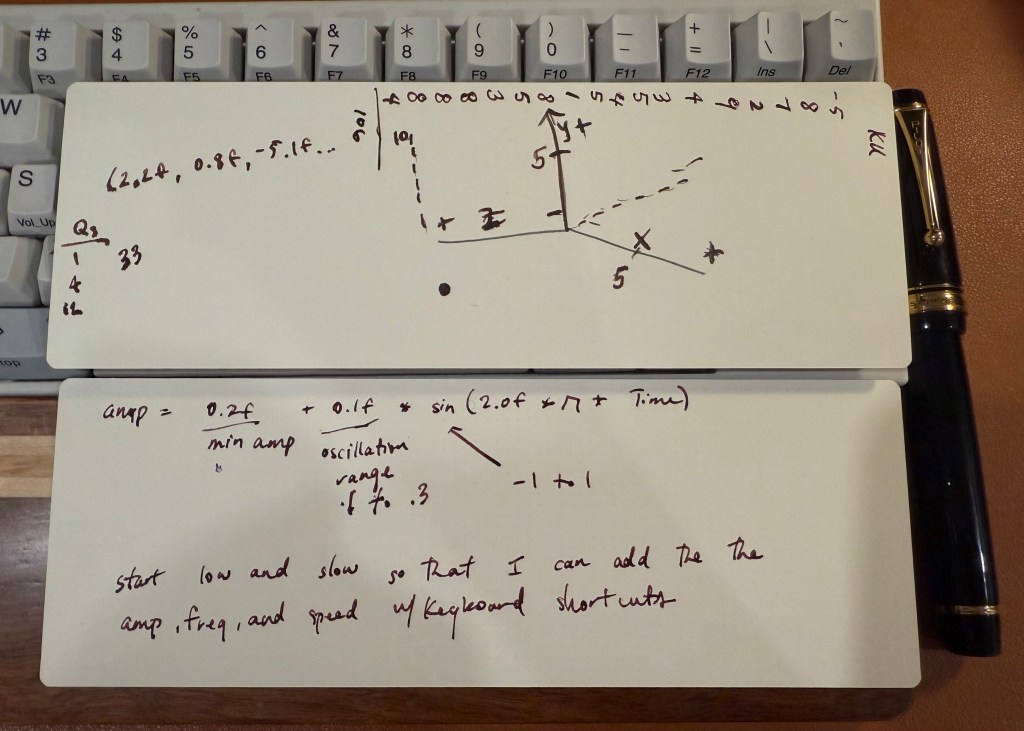 # $ % ^ & * ( ) — + | ~
3 4 5 6 7 8 9 0 - = \
F3 F4 F5 F6 F7 F8 F9 F10 F11 F12 Ins Del
W
S
Vol_Up
(2.2f, 0.8f, -5.1f...
106
4 8 8 8 8 3 5 8 1 5 4 5 3 4 9 2 7 8 -5
10
y+
5
1 + Z
X
5
Qs
1 33
4
12
amp = 0.2f + 0.1f * sin (2.0f * π * Time)
min amp
oscillation
range
.1 to .3
-1 to 1
start low and slow so that I can add the the
amp, freq, and speed w/ Keyboard shortcuts